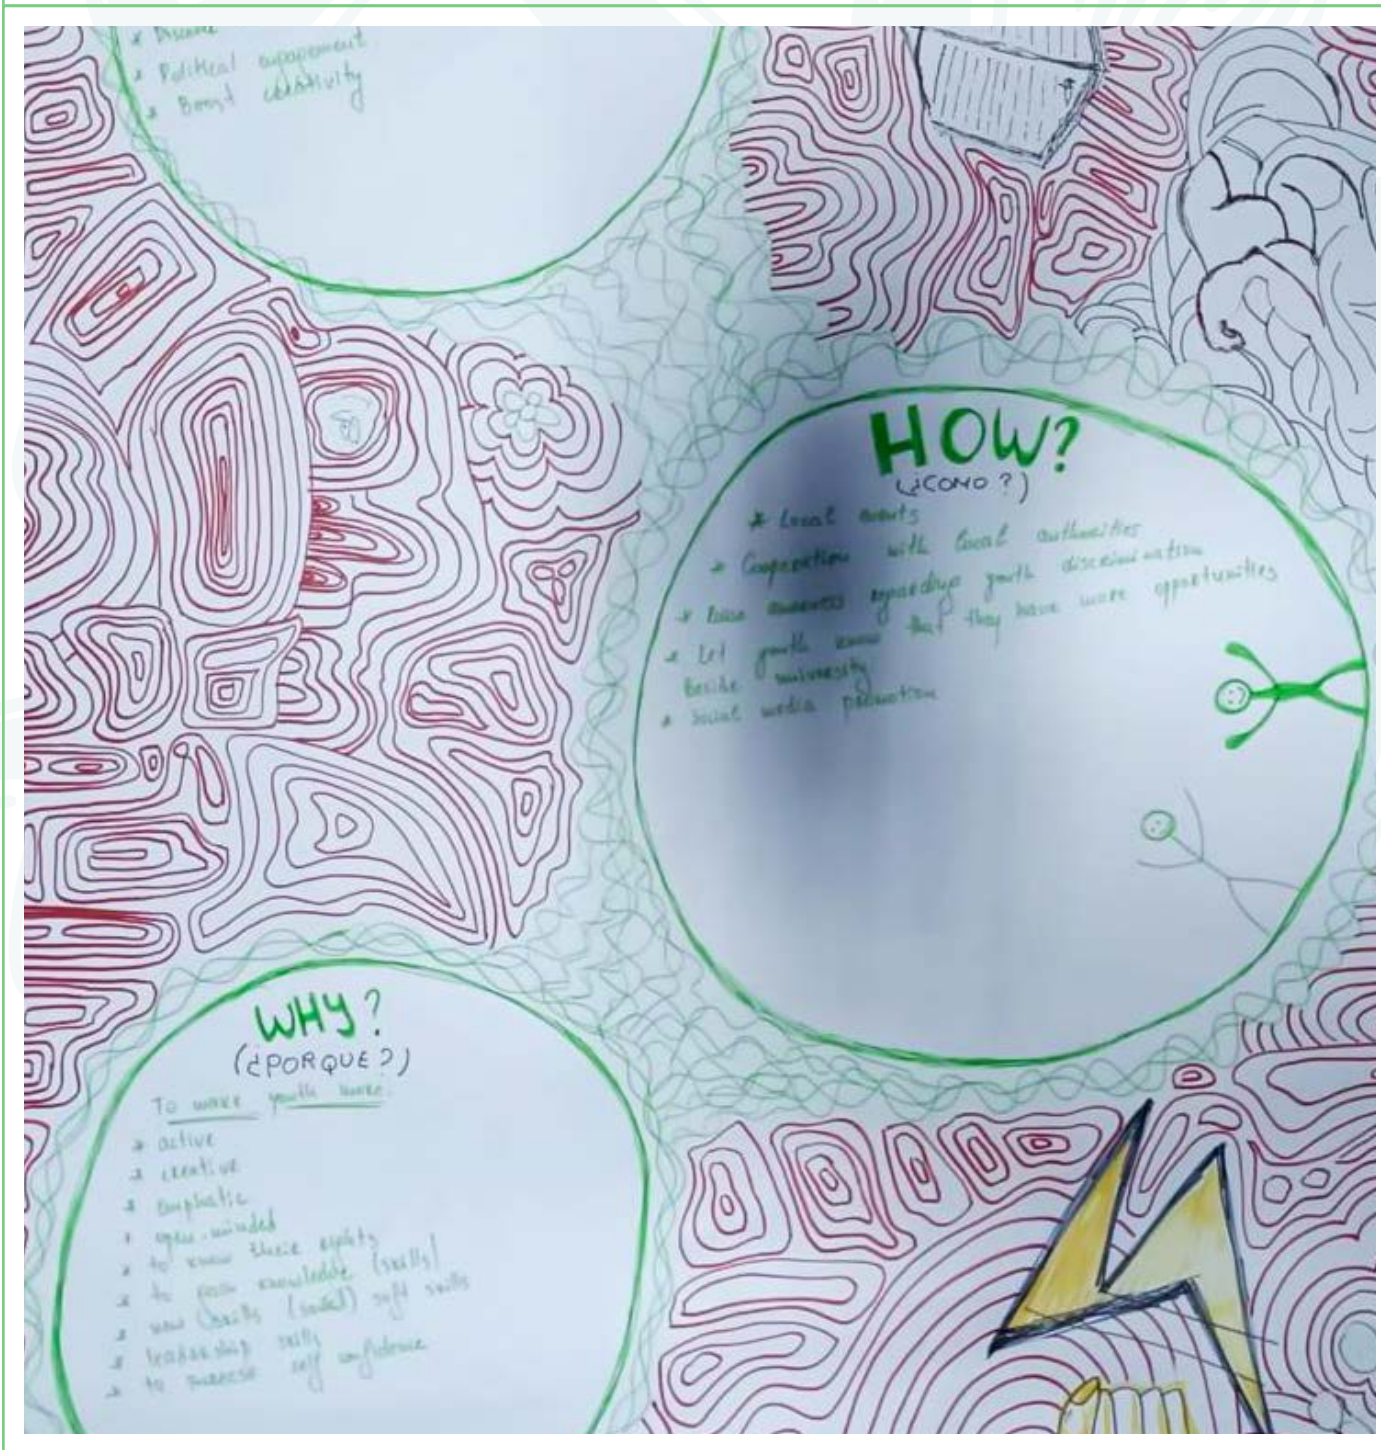 * Political engagement
* Boost creativity
HOW?
(¿COMO?)
* Local events
* Cooperation with local authorities
* Raise awareness regarding youth discrimination
* Let youth know that they have more opportunities
Beside university
* Social media promotion
WHY?
(¿PORQUE?)
To make youth more:
* active
* creative
* emphatic
* open-minded
* to know their rights
* to knowledge (skills)
* new skills (social) soft skills
* leadership skills
* to self confidence